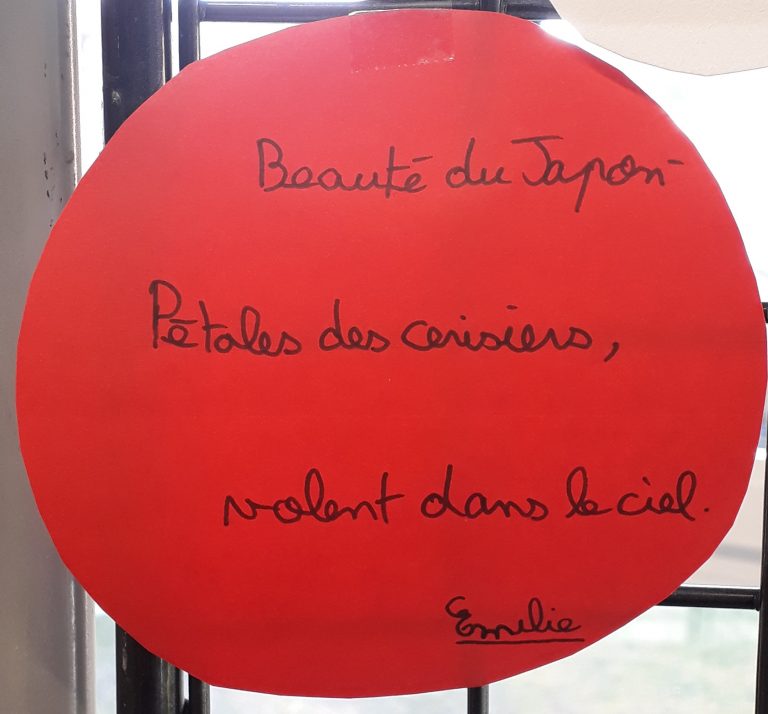 Beauté du Japon
Pétales des cerisiers,
volent dans le ciel.
Emilie